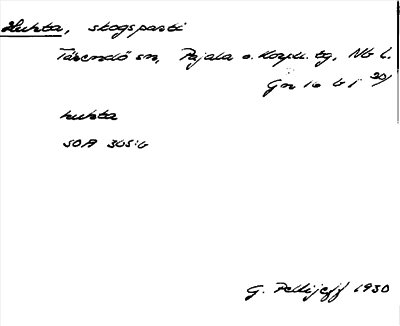 Huhta, skogsparti
Tärendö sn, Pajala o. Korpil. tg, Nb l.
Gn 16 b 1 30/
huhta
SOA 365:6
G. Pellijeff 1930